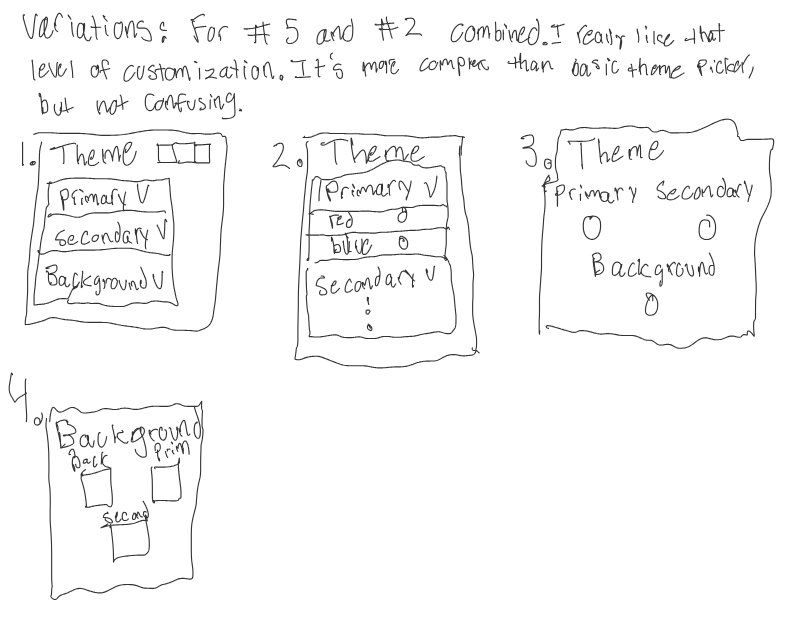 Variations: For #5 and #2 combined. I really like that
level of customization. It's more complex than basic theme picker,
but not confusing.
1. Theme
Primary V
Secondary V
Background V
2. Theme
Primary V
red
blue
Secondary V
3. Theme
Primary Secondary
Background
4.
Background
Back Prim
Second